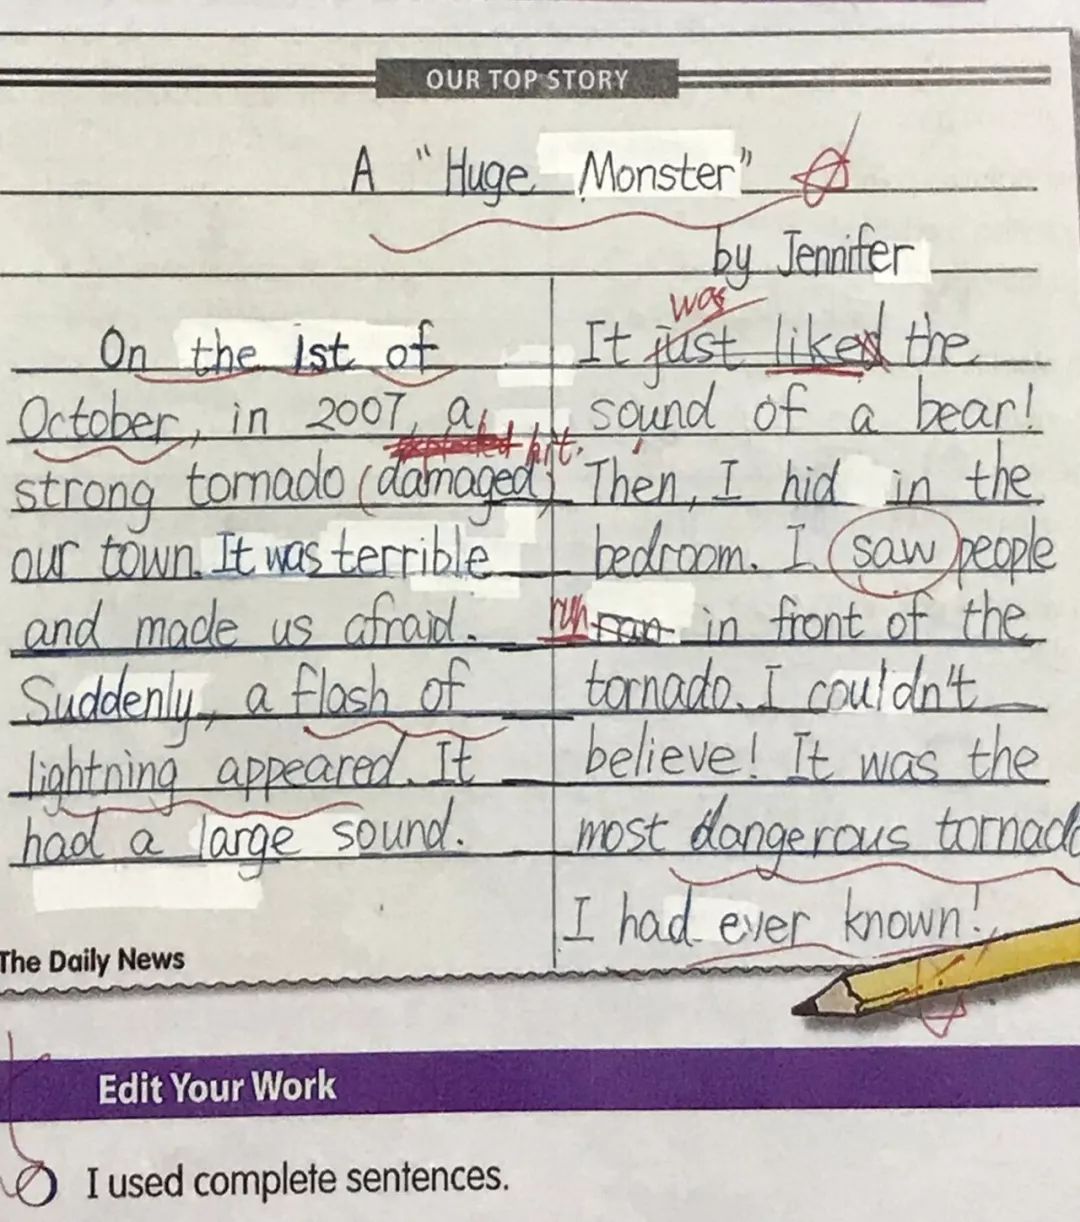 OUR TOP STORY
A "Huge Monster"
by Jennifer
On the 1st of
October, in 2007, a
hit.
strong tornado (damaged)
our town. It was terrible
and made us afraid.
Suddenly, a flash of
lightning appeared. It
had a large sound.
was
It just liked the
sound of a bear!
Then, I hid in the
bedroom. I saw people
run ran in front of the
tornado. I couldn't
believe! It was the
most dangerous tornado
I had ever known!
The Daily News
Edit Your Work
I used complete sentences.